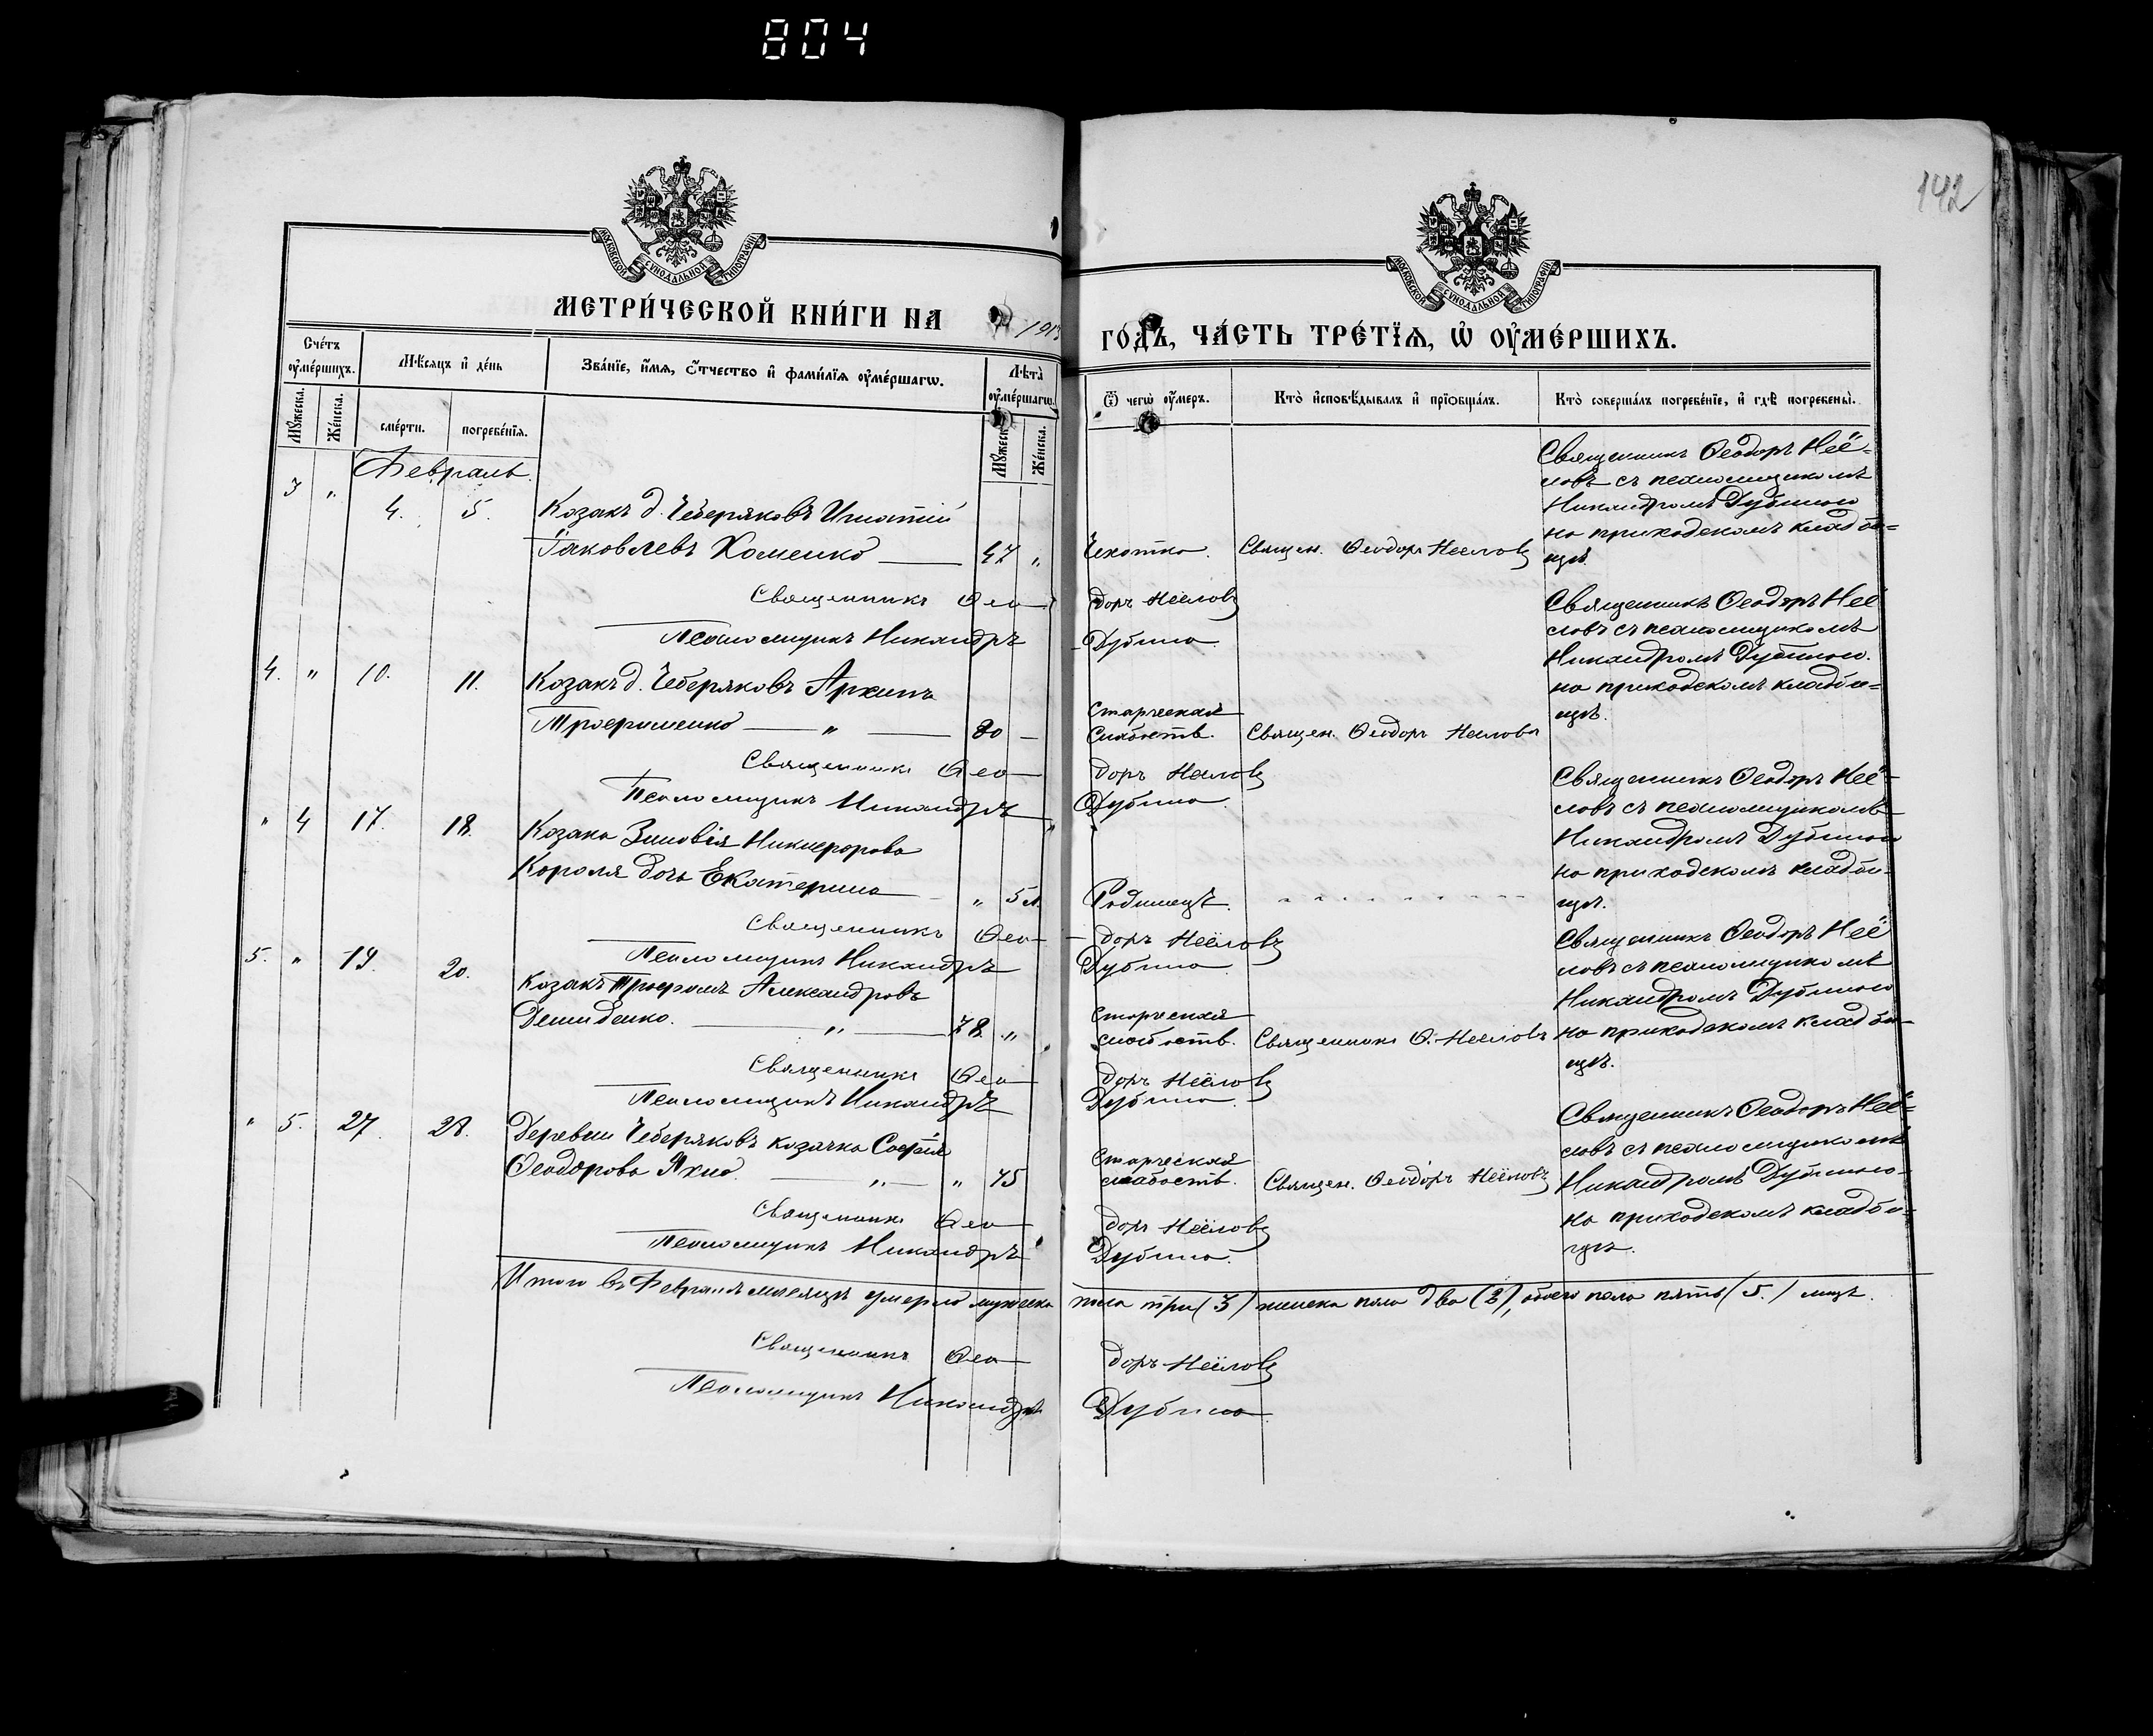 804
142
МОСКОВСКОЙ СУНОДАЛЬНОЙ ТИПОГРАФІИ
МОСКОВСКОЙ СУНОДАЛЬНОЙ ТИПОГРАФІИ
МЕТРИ́ЧЕСКОЙ КНИ́ГИ НА 1913
ГО́ДЪ, ЧА́СТЬ ТРЕ́ТІѦ, Ѡ҆ ОУ҆МЕ́РШИХЪ.
Сче́тъ оу҆ме́ршихъ.
Мꙋ́жеска.
Же́нска.
Мѣ́сяцъ и҆ де́нь
сме́рти.
погребе́нїѧ.
Зва́нїе, и҆́мѧ, ѻ҆́тчество и҆ фами́лїѧ оу҆ме́ршагѡ.
Лѣ́та оу҆ме́ршагѡ.
Мꙋ́жеск.
Же́нска.
Ѿ чегѡ̀ оу҆́меръ.
Кто̀ и҆сповѣ́дывалъ и҆ прїѡбща́лъ.
Кто̀ соверша́лъ погребе́нїе, и҆ гдѣ̀ погребены̀.
Февраль.
3 " 4. 5. Козакъ д. Чеберяковъ Игнатій
Іаковлевъ Хоменко 47 "
Чахотка. Священ. Ѳеодоръ Неёловъ
Священникъ Ѳеодоръ Неё-
ловъ съ псаломщикомъ
Никандромъ Дубиною
на приходскомъ кладби-
щѣ.
Священникъ Ѳео-
доръ Неёловъ
Псаломщикъ Никандръ
Дубина.
4. " 10. 11. Козакъ д. Чеберяковъ Архипъ
Трофименко " 80 –
Старческая
слабость. Священ. Ѳеодоръ Неёловъ
Священникъ Ѳеодоръ Неё
ловъ съ псаломщикомъ
Никандромъ Дубиною.
на приходскомъ кладби-
щѣ.
Священникъ Ѳео-
доръ Неёловъ
Псаломщикъ Никандръ
Дубина
" 4 17. 18. Козака Зиновія Никифорова
Короля дочь Екатерина " 5 л.
Родимецъ.
Священникъ Ѳеодоръ Неё-
ловъ съ псаломщикомъ
Никандромъ Дубиною
на приходскомъ кладби-
щѣ.
Священникъ Ѳео-
доръ Неёловъ
Псаломщикъ Никандръ
Дубина
5. " 19. 20. Козакъ Трофимъ Александровъ
Демиденко. " 78 "
Старческая
слабость. Священникъ Ѳ. Неёловъ
Священникъ Ѳеодоръ Неё
ловъ съ псаломщикомъ
Никандромъ Дубиною
на приходскомъ кладби-
щѣ.
Священникъ Ѳео-
доръ Неёловъ
Псаломщикъ Никандръ
Дубина.
" 5. 27. 28. Деревни Чеберяковъ козачка Софія
Ѳеодорова Яхно. " " 75
Старческая
слабость. Священ. Ѳеодоръ Неёловъ
Священникъ Ѳеодоръ Неё-
ловъ съ псаломщикомъ
Никандромъ Дубиною
на приходскомъ кладби-
щѣ.
Священникъ Ѳео-
доръ Неёловъ
Псаломщикъ Никандръ
Дубина.
Итого въ Февралѣ мѣсяцѣ умерло мужеска пола три (3) женска пола два (2), обоего пола пять (5.) лицъ.
Священникъ Ѳео-
доръ Неёловъ
Псаломщикъ Никандръ
Дубина